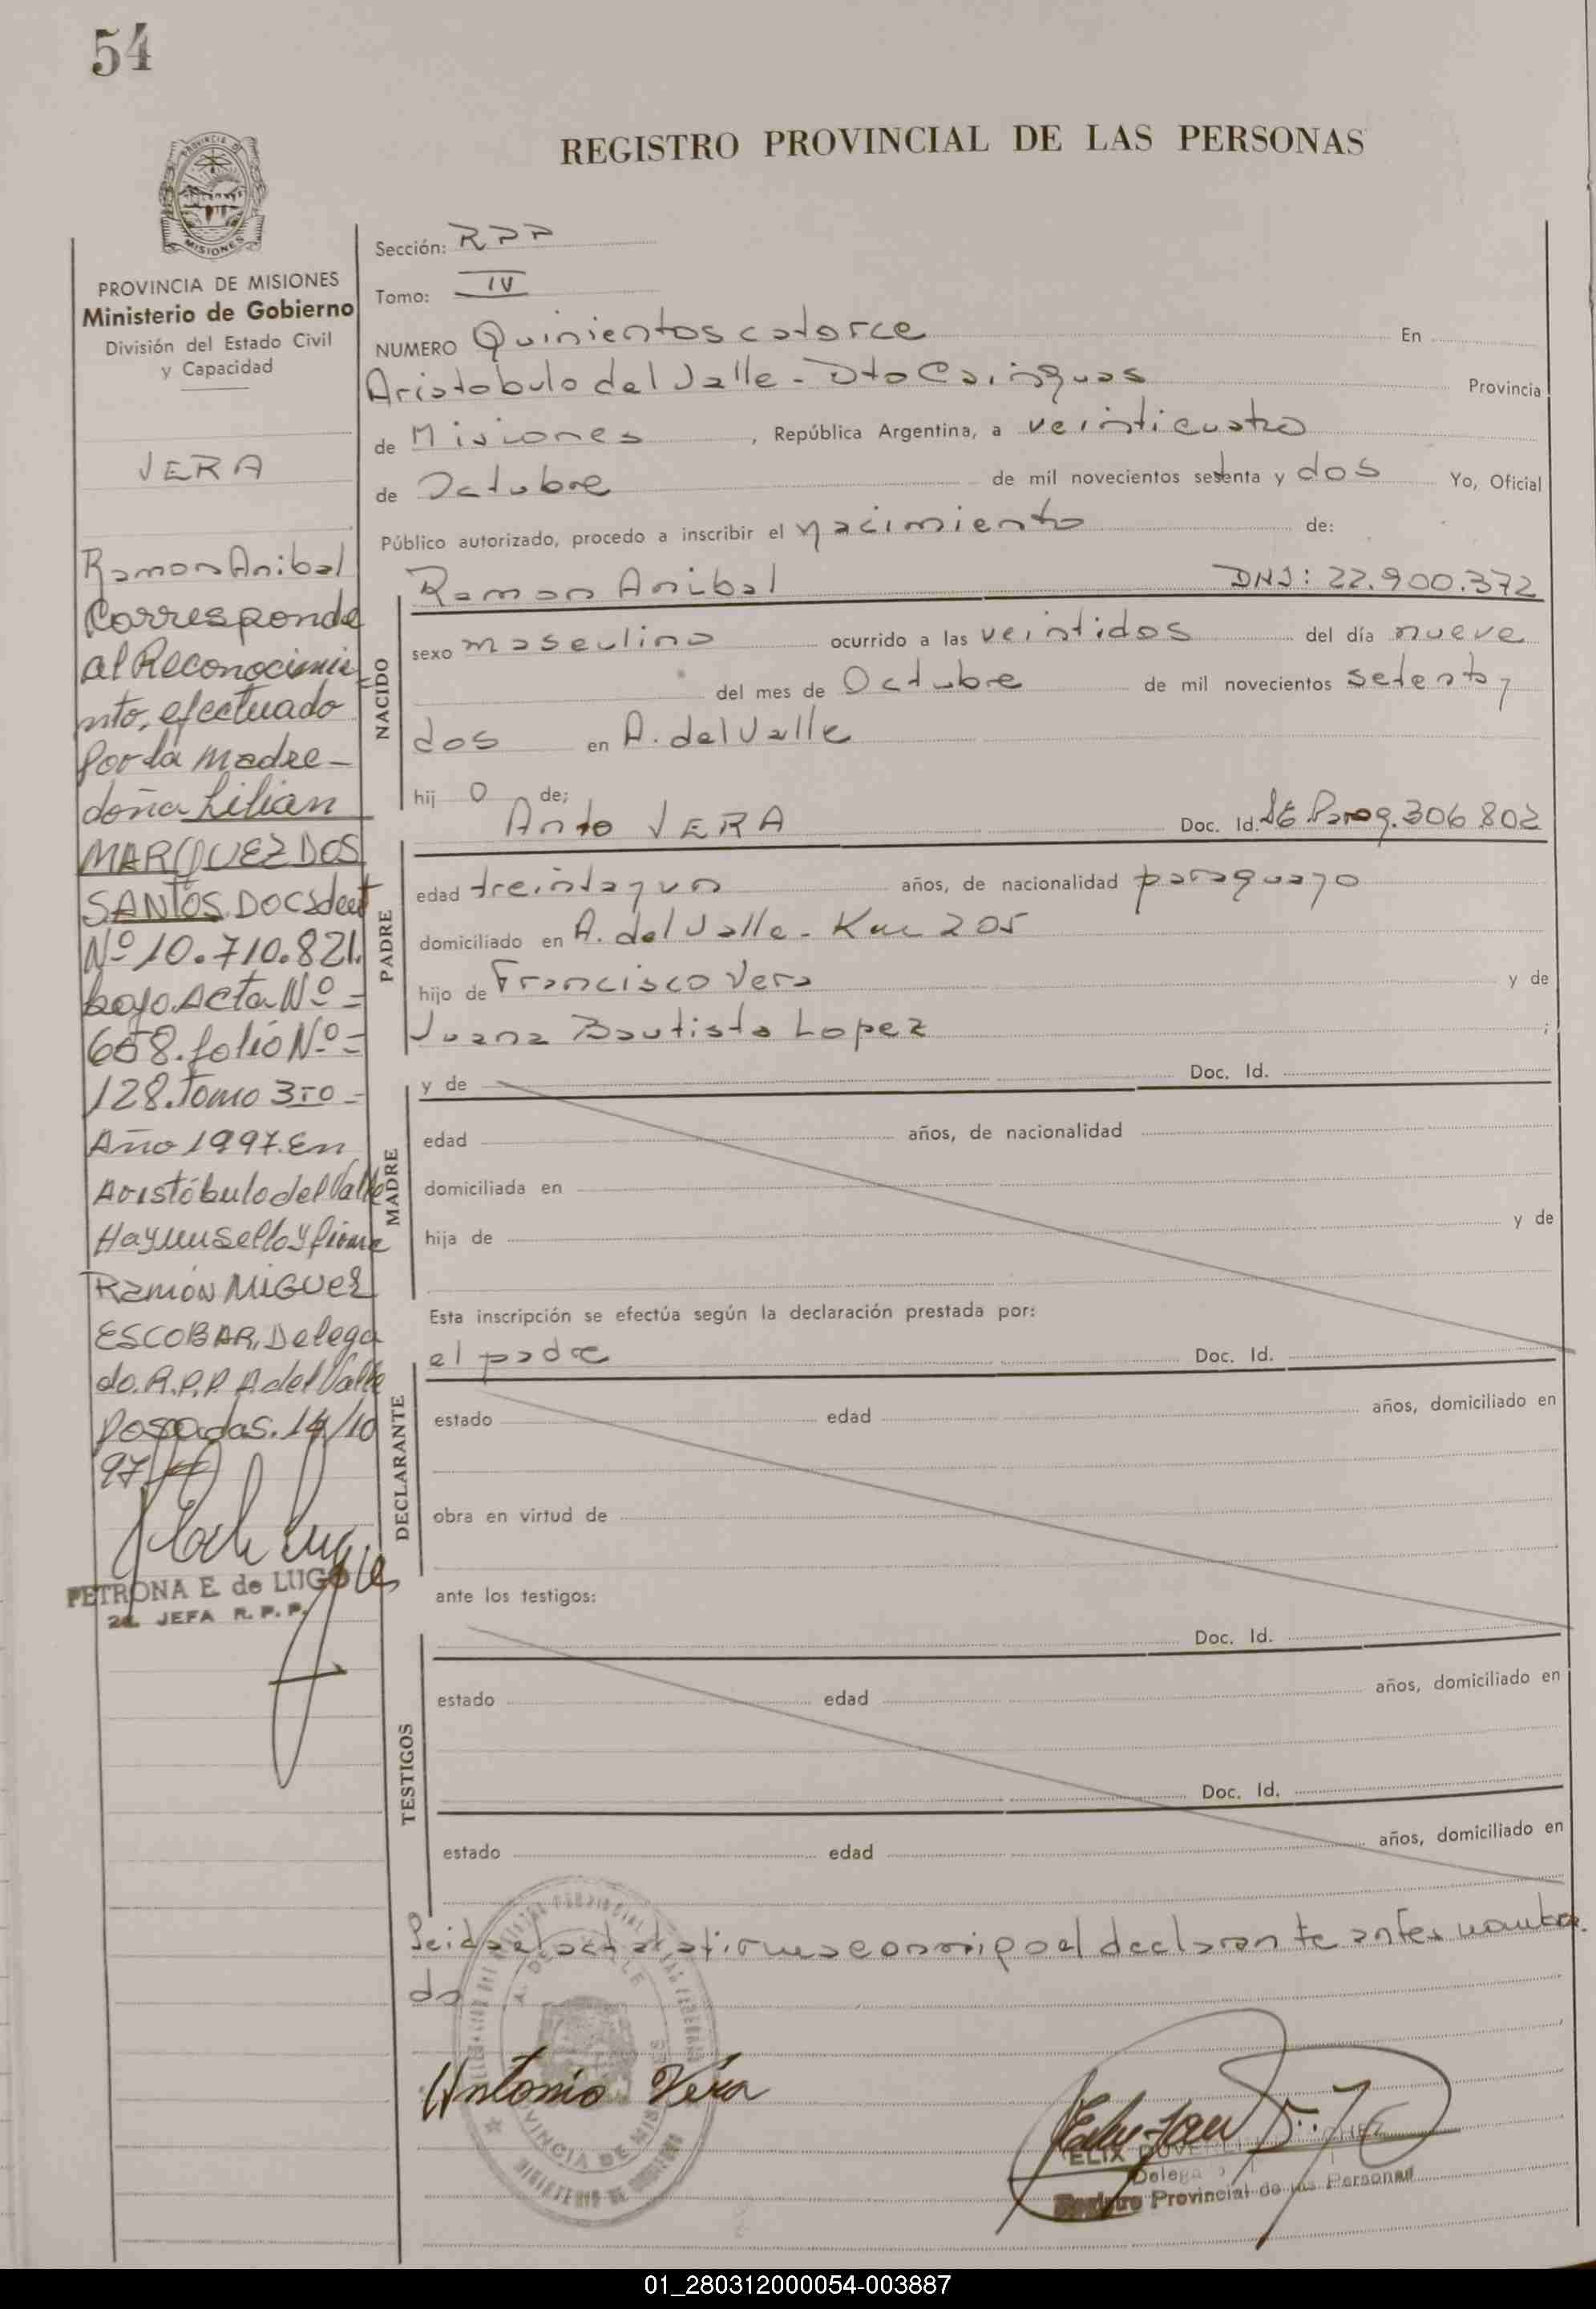 54
PROVINCIA DE
MISIONES
REGISTRO PROVINCIAL DE LAS PERSONAS
PROVINCIA DE MISIONES
Ministerio de Gobierno
División del Estado Civil
y Capacidad
VERA
Ramon Anibal
Corresponde
al Reconocimie
nto, efectuado
por la madre -
doña Lilian
MARQUEZ DOS
SANTOS. DOC Ident
Nº 10.710.821.
bajo Acta Nº =
658. folio Nº =
128. Tomo 3ro -
Año 1997. En
Aristóbulo del Valle
Hay un sello y firma
Ramón MIGUEL
ESCOBAR, Delega
do. R.P.P. A del Valle
Posadas. 14/10
97
PETRONA E. de LUGO
2a. JEFA R. P. P.
Sección: RPP
Tomo: IV
NUMERO Quinientos catorce En
Aristobulo del Valle - Dto Cainguas Provincia
de Misiones, República Argentina, a veinticuatro
de Octubre de mil novecientos setenta y dos Yo, Oficial
Público autorizado, procedo a inscribir el nacimiento de:
NACIDO
Ramon Anibal DNI: 22.900.372
sexo masculino ocurrido a las veintidos del día nueve
del mes de Octubre de mil novecientos setenta y
dos en A. del Valle
hij o de;
PADRE
Anto VERA Doc. Id. Parag. 306 802
edad treinta y un años, de nacionalidad paraguayo
domiciliado en A. del Valle - Km 205
hijo de Francisco Vera y de
Juana Bautista Lopez ;
MADRE
y de Doc. Id.
edad años, de nacionalidad
domiciliada en
hija de y de
Esta inscripción se efectúa según la declaración prestada por:
DECLARANTE
el padre Doc. Id.
estado edad años, domiciliado en
obra en virtud de
ante los testigos:
TESTIGOS
Doc. Id.
estado edad años, domiciliado en
Doc. Id.
estado edad años, domiciliado en
Leida el acta la firma conmigo el declarante antes nombra
do
Antonio Vera
PROVINCIA DE MIS
MINISTERIO DE GOBIERNO
Delega
Registro Provincial de las Personas
01_280312000054-003887